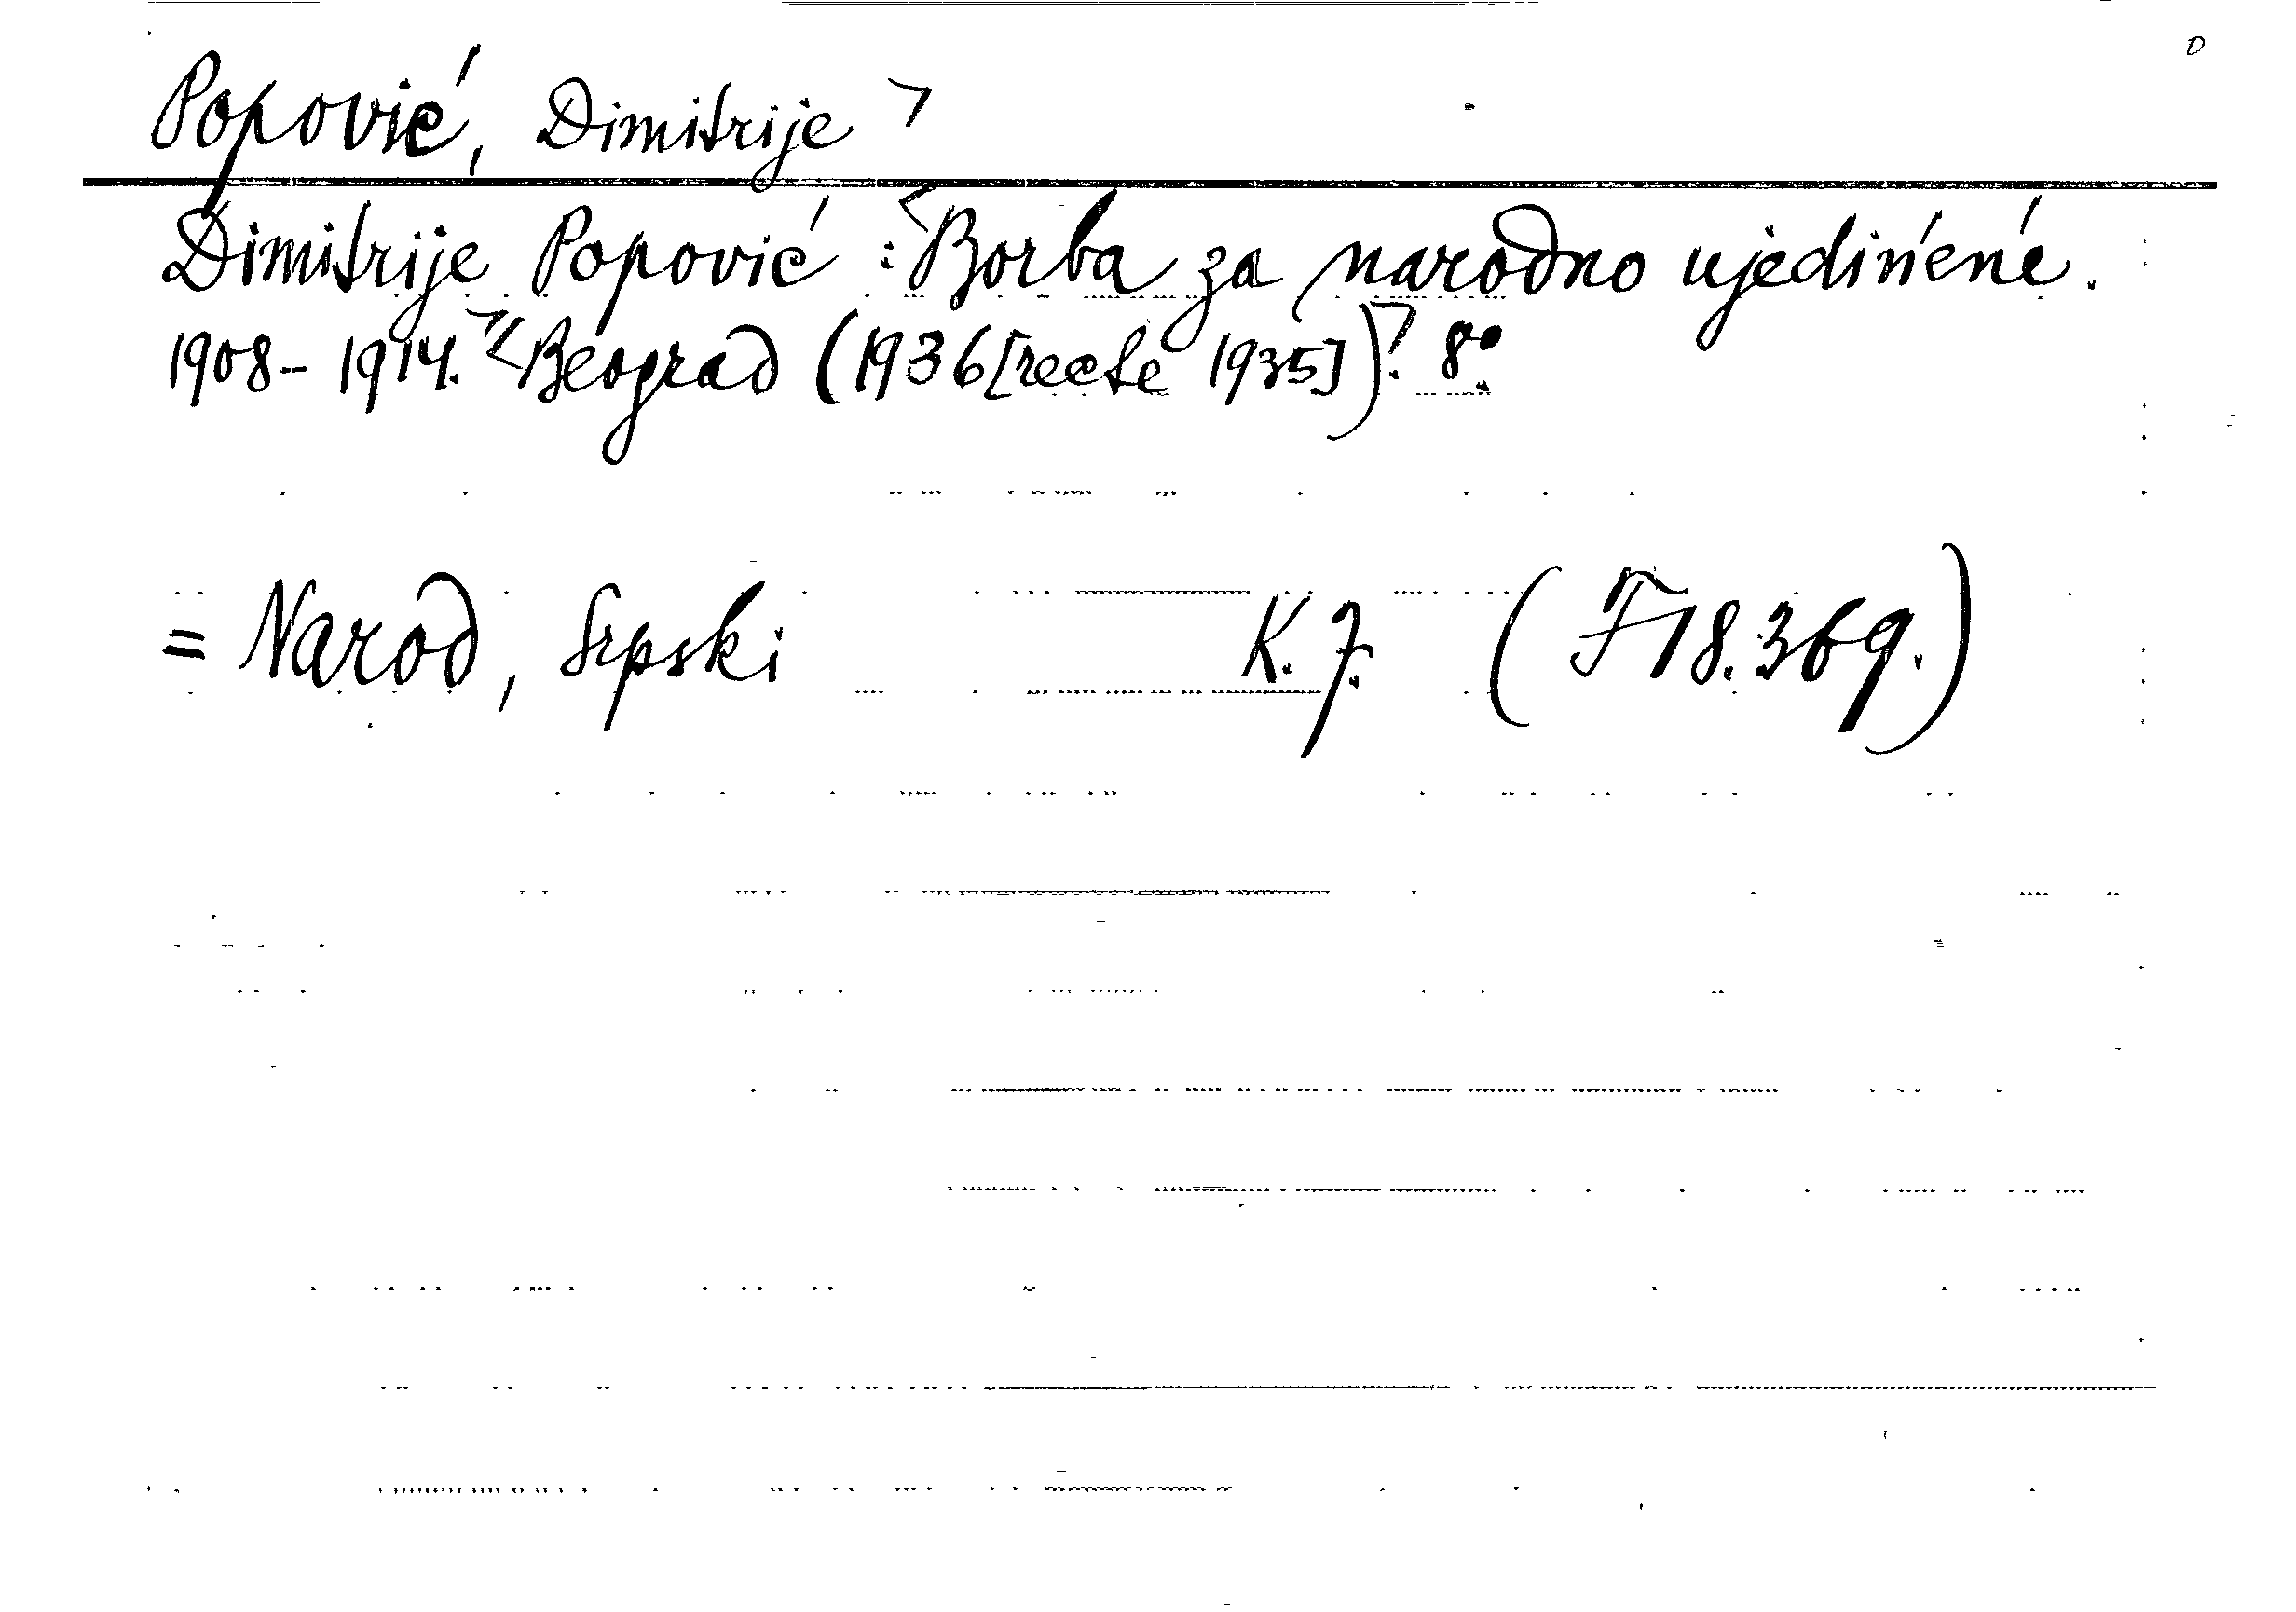 D
Popović, Dimitrije >
Dimitrije Popović : <Borba za narodno ujedińeńe.
1908-1914.> <Beograd (1936 [recte 1935])>. 8°.
= Narod, Srpski K. 7. (F 18.369.)